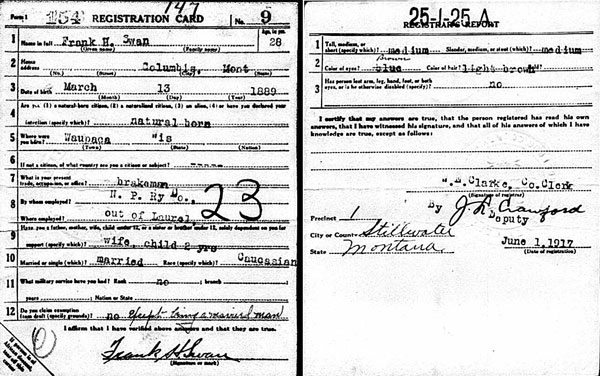 Form 1 254 147 REGISTRATION CARD No. 9
1 Name in full Frank H. Swan Age, in yrs. 28
(Given name) (Family name)
2 Home address Columbis, Mont
(No.) (Street) (City) (State)
3 Date of birth March 13 1889
(Month) (Day) (Year)
4 Are you (1) a natural-born citizen, (2) a naturalized citizen, (3) an alien, (4) or have you declared your
intention (specify which)? natural born
5 Where were you born? Waupaca "is
(Town) (State) (Nation)
6 If not a citizen, of what country are you a citizen or subject?
7 What is your present trade, occupation, or office? brakeman
8 By whom employed? N. P. Ry Co.,
Where employed? out of Laurel
23
9 Have you a father, mother, wife, child under 12, or a sister or brother under 12, solely dependent on you for
support (specify which)? wife child 2 yrs
10 Married or single (which)? married Race (specify which)? Caucasian
11 What military service have you had? Rank no ; branch
years ; Nation or State
12 Do you claim exemption from draft (specify grounds)? no except being a married man
I affirm that I have verified above answers and that they are true.
Frank H Swan
(Signature or mark)
25-1-25 A
REGISTRAR'S REPORT
1 Tall, medium, or short (specify which)? medium Slender, medium, or stout (which)? medium
2 Color of eyes? Brown blue Color of hair? light brown
3 Has person lost arm, leg, hand, foot, or both
eyes, or is he otherwise disabled (specify)? no
I certify that my answers are true, that the person registered has read his own
answers, that I have witnessed his signature, and that all of his answers of which I have
knowledge are true, except as follows:
".E.Clarke, Co.Clerk
(Signature of registrar)
By J. R. Crawford
Deputy
Precinct 1
City or County Stillwater
State Montana
June 1, 1917
(Date of registration)